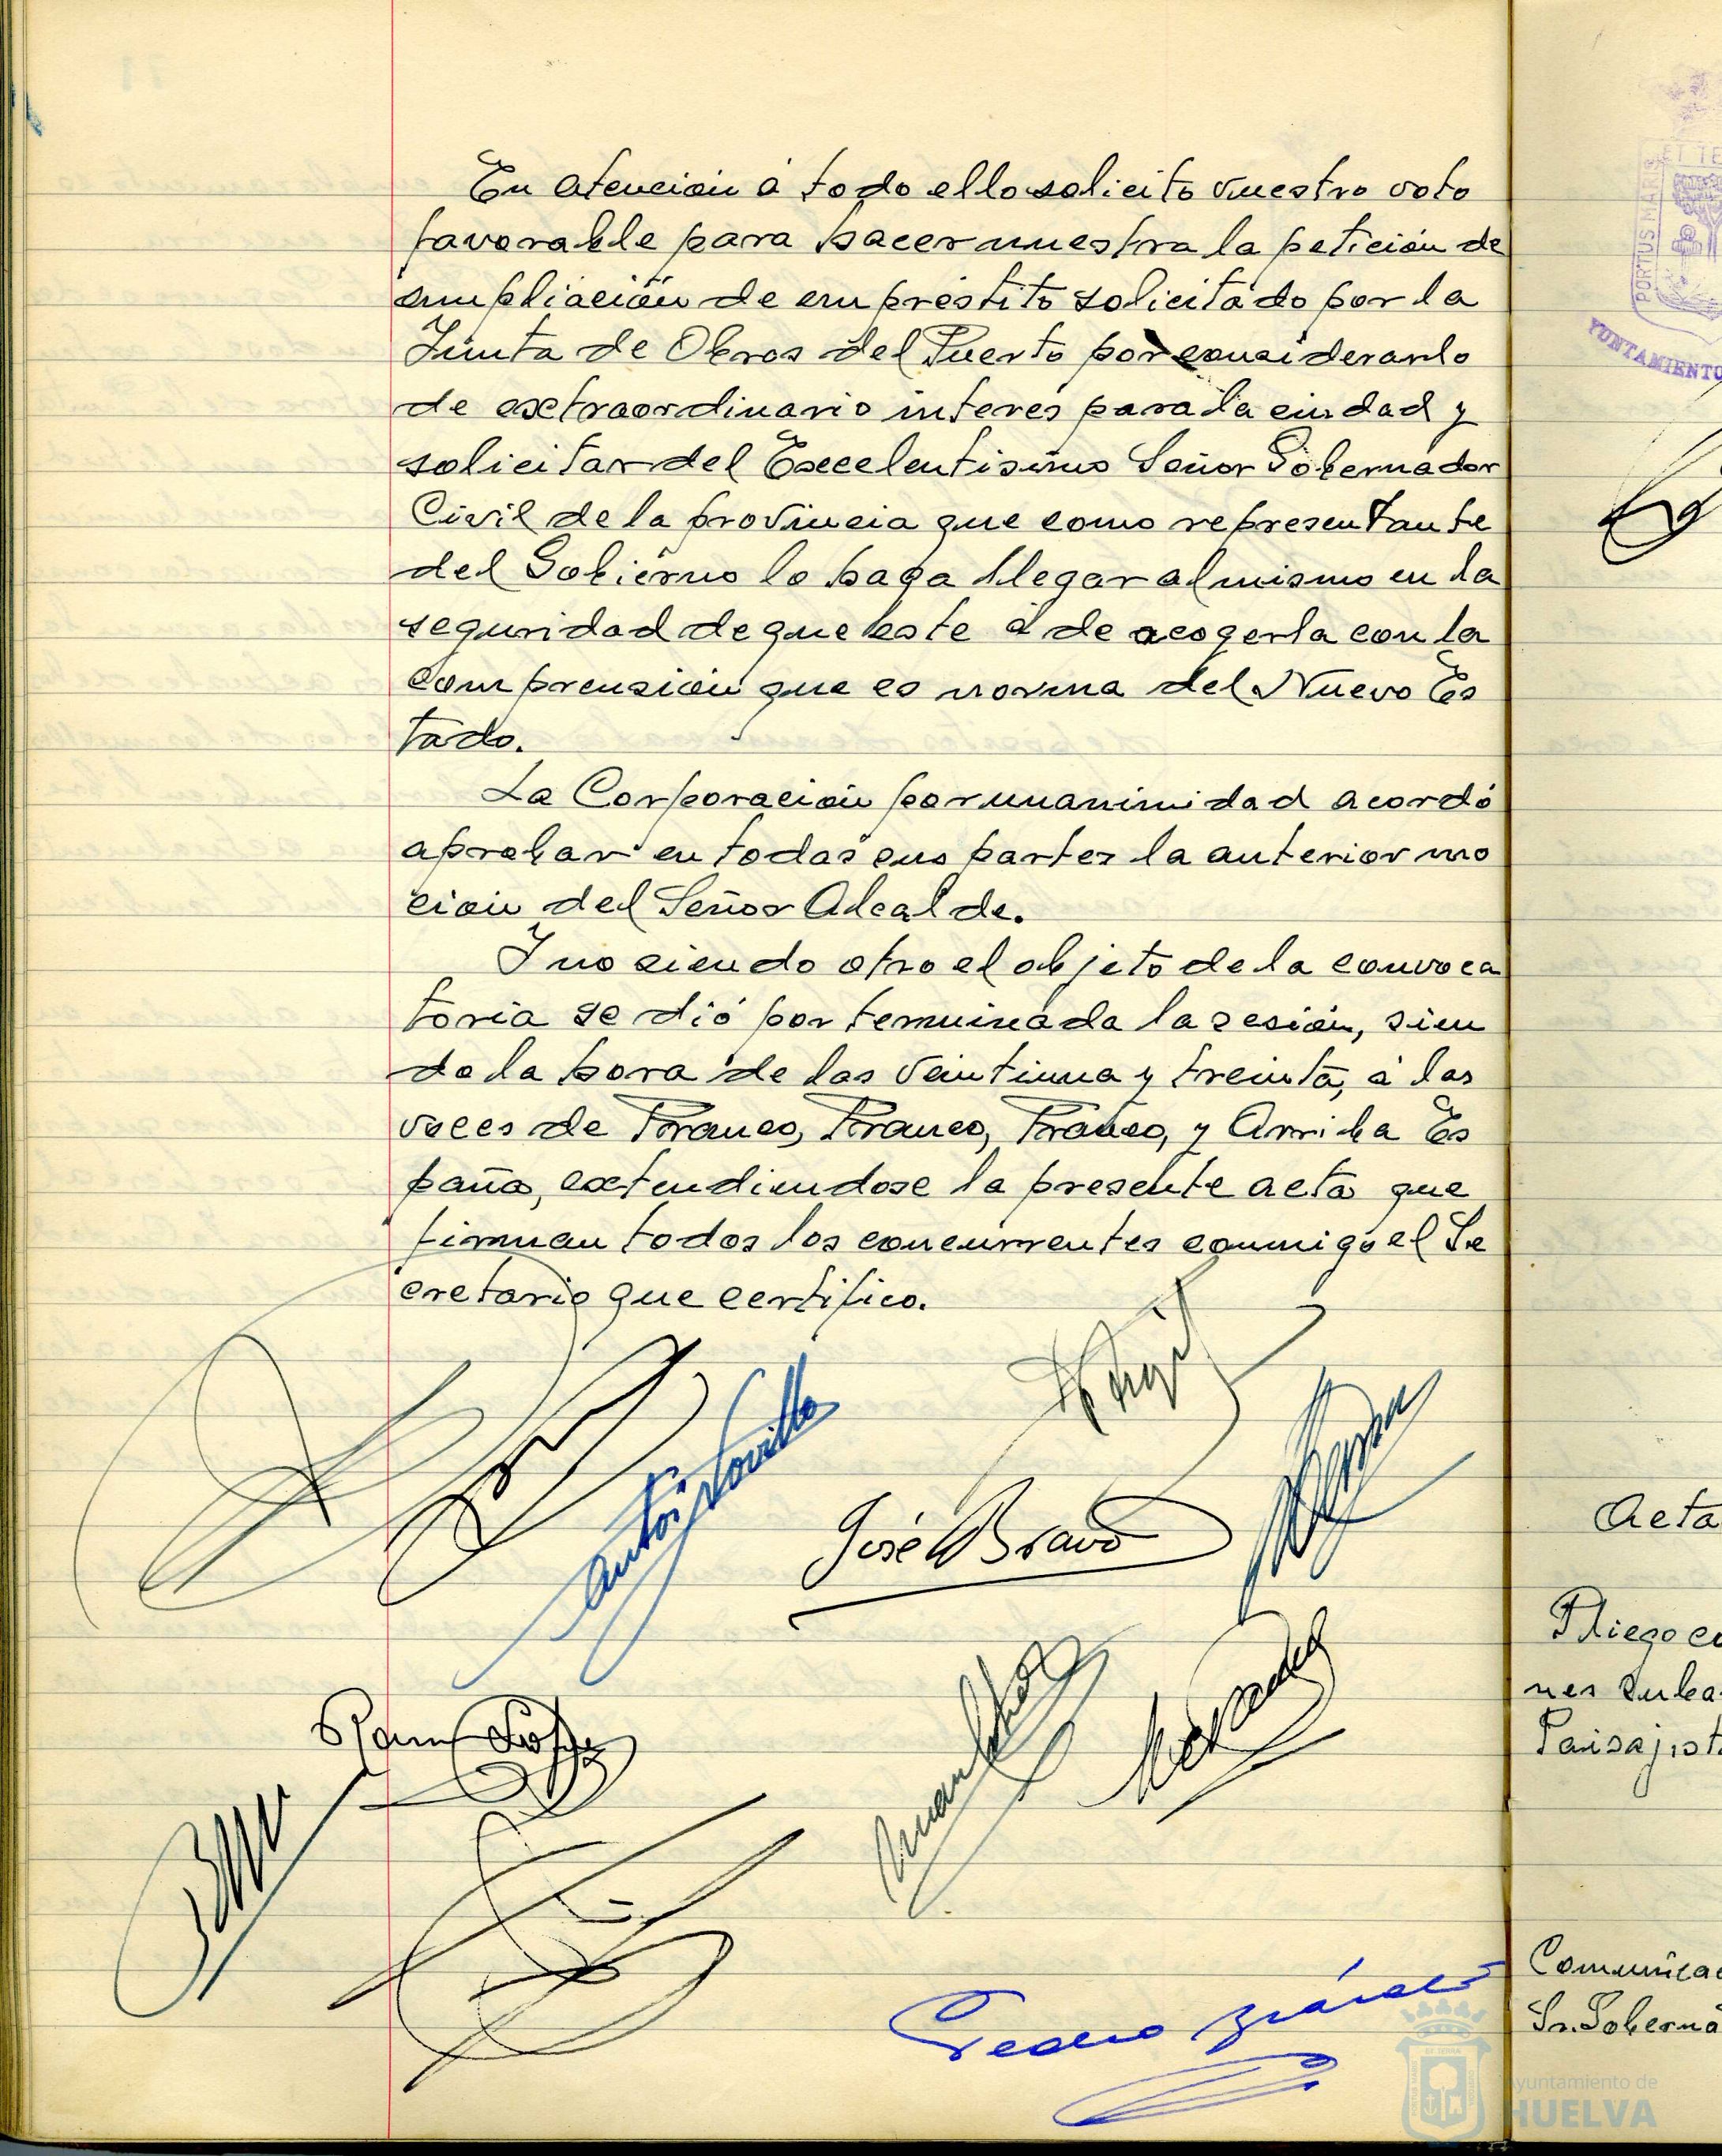 En atención á todo ello solicito vuestro voto
favorable para hacer nuestra la petición de
ampliación de empréstito solicitado por la
Junta de Obras del Puerto por considerarlo
de extraordinario interés para la ciudad y
solicitar del Excelentísimo Señor Gobernador
Civil de la provincia que como representante
del Gobierno lo haga llegar al mismo en la
seguridad de que este á de acogerla con la
comprensión que es norma del Nuevo Es
tado.
La Corporación por unanimidad acordó
aprobar en todas sus partes la anterior mo
ción del Señor Alcalde.
Y no siendo otro el objeto de la convoca
toria se dió por terminada la sesión, sien
do la hora de las veintiuna y treinta, á las
voces de Franco, Franco, Franco, y Arriba Es
paña, extendiendose la presente acta que
firman todos los concurrentes conmigo el Se
cretario que certifico.
José Bravo
Pedro
PORTUS MARIS ET TE
YUNTAMIENTO
Acta
Pliego
nes
Paisajist
Comunica
Sr. Goberna
Ayuntamiento de
HUELVA